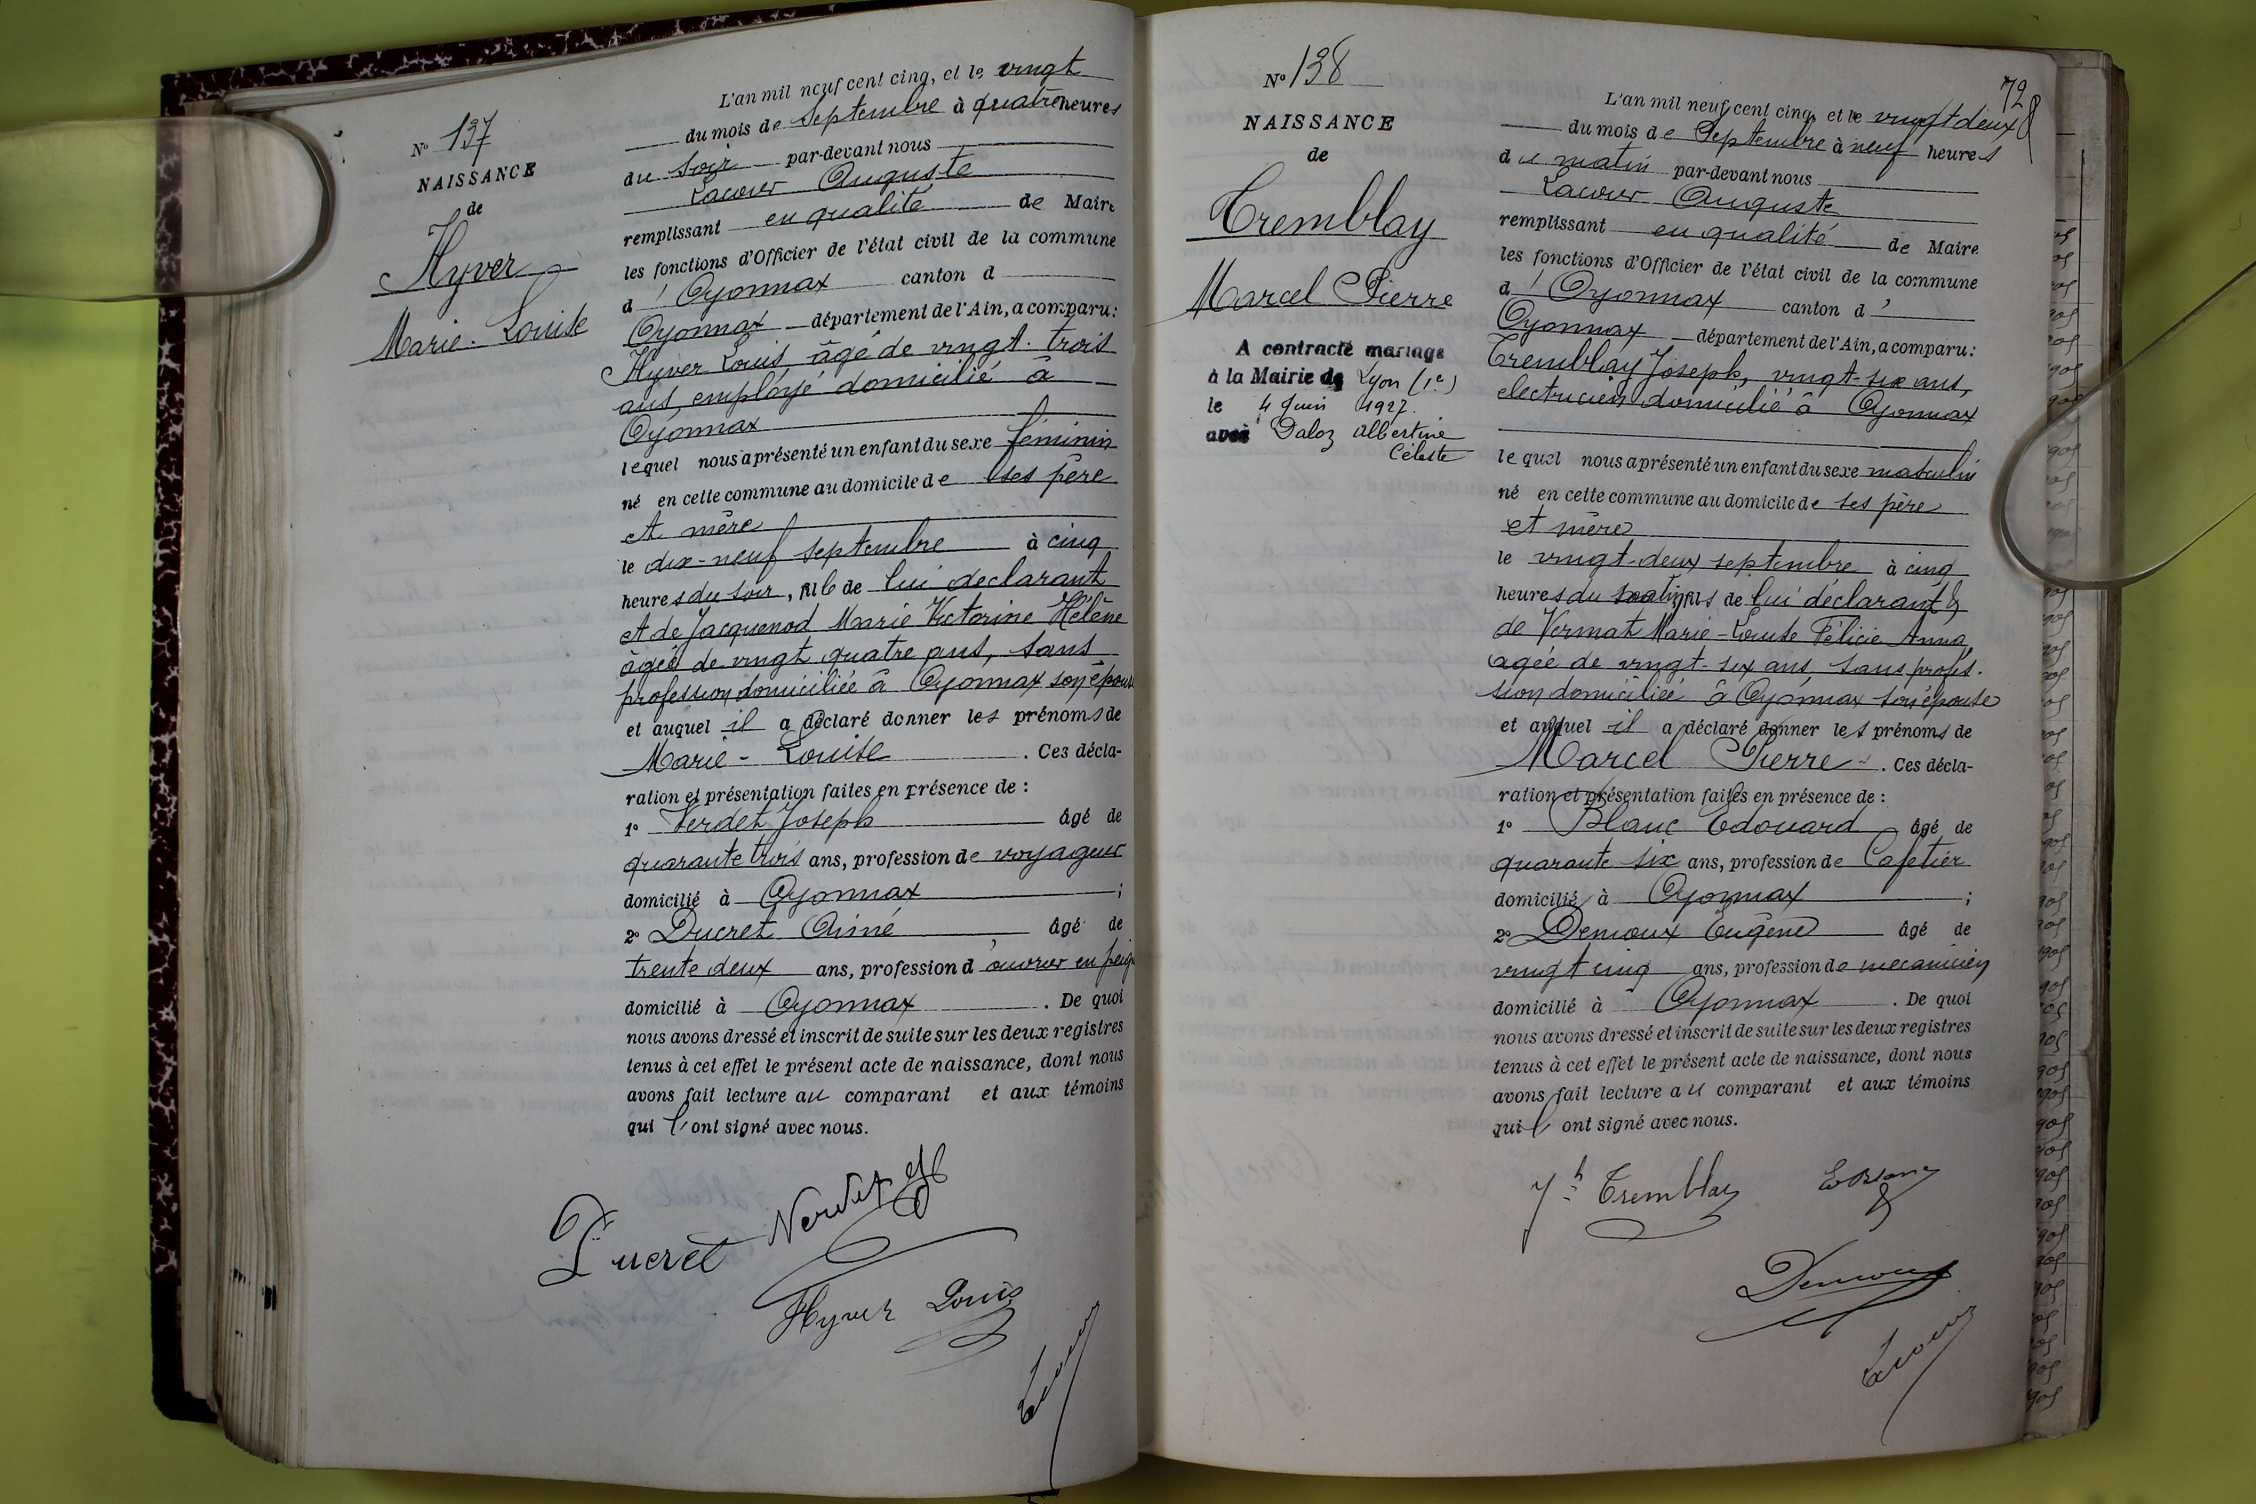 N° 137
NAISSANCE
de
Hyver
Marie-Louise
L'an mil neuf cent cinq, et le vingt
du mois de Septembre à quatre heures
du soir par-devant nous
Lacour Auguste
remplissant en qualité de Maire
les fonctions d'Officier de l'état civil de la commune
d' Oyonnax canton d
Oyonnax département de l'Ain, a comparu:
Hyver Louis âgé de vingt-trois
ans, employé domicilié à
Oyonnax
lequel nous a présenté un enfant du sexe féminin
né en cette commune au domicile de ses père
et mère
le dix-neuf septembre à cinq
heures du soir, fil de lui declarant
et de Jacquenod Marie Victorine Hélène
âgée de vingt quatre ans, sans
profession domiciliée à Oyonnax son épouse
et auquel il a déclaré donner les prénoms de
Marie-Louise. Ces décla-
ration et présentation faites en présence de :
1° Verdet Joseph âgé de
quarante trois ans, profession de voyageur
domicilié à Oyonnax ;
2° Ducret Aimé âgé de
trente deux ans, profession d'ouvrier en
domicilié à Oyonnax. De quoi
nous avons dressé et inscrit de suite sur les deux registres
tenus à cet effet le présent acte de naissance, dont nous
avons fait lecture au comparant et aux témoins
qui l'ont signé avec nous.
Ducret Verdet
Hyver Louis
Lacour
72
N° 138
NAISSANCE
de
Tremblay
Marcel Pierre
A contracté mariage
à la Mairie de Lyon (1e)
le 4 Juin 1927.
avec Daloz Albertine
Céleste
L'an mil neuf cent cinq, et le vingt deux
du mois de Septembre à neuf heures
du matin par-devant nous
Lacour Auguste
remplissant en qualité de Maire
les fonctions d'Officier de l'état civil de la commune
d' Oyonnax canton d'
Oyonnax département de l'Ain, a comparu:
Tremblay Joseph, vingt-six ans,
electricien domicilié à Oyonnax
lequel nous a présenté un enfant du sexe masculin
né en cette commune au domicile de ses père
et mère
le vingt-deux septembre à cinq
heures du matin, fils de lui déclarant &
de Vermat Marie-Louise Félicie Anna,
agée de vingt-six ans, sans profes-
sion domiciliée à Oyonnax son épouse
et auquel il a déclaré donner les prénoms de
Marcel Pierre. Ces décla-
ration et présentation faites en présence de :
1° Blanc Edouard âgé de
quarante six ans, profession de Cafetier
domicilié à Oyonnax ;
2° Demoux Eugène âgé de
vingt cinq ans, profession de mecanicien
domicilié à Oyonnax. De quoi
nous avons dressé et inscrit de suite sur les deux registres
tenus à cet effet le présent acte de naissance, dont nous
avons fait lecture au comparant et aux témoins
qui l'ont signé avec nous.
Jh Tremblay E Blanc
Demoux
Lacour